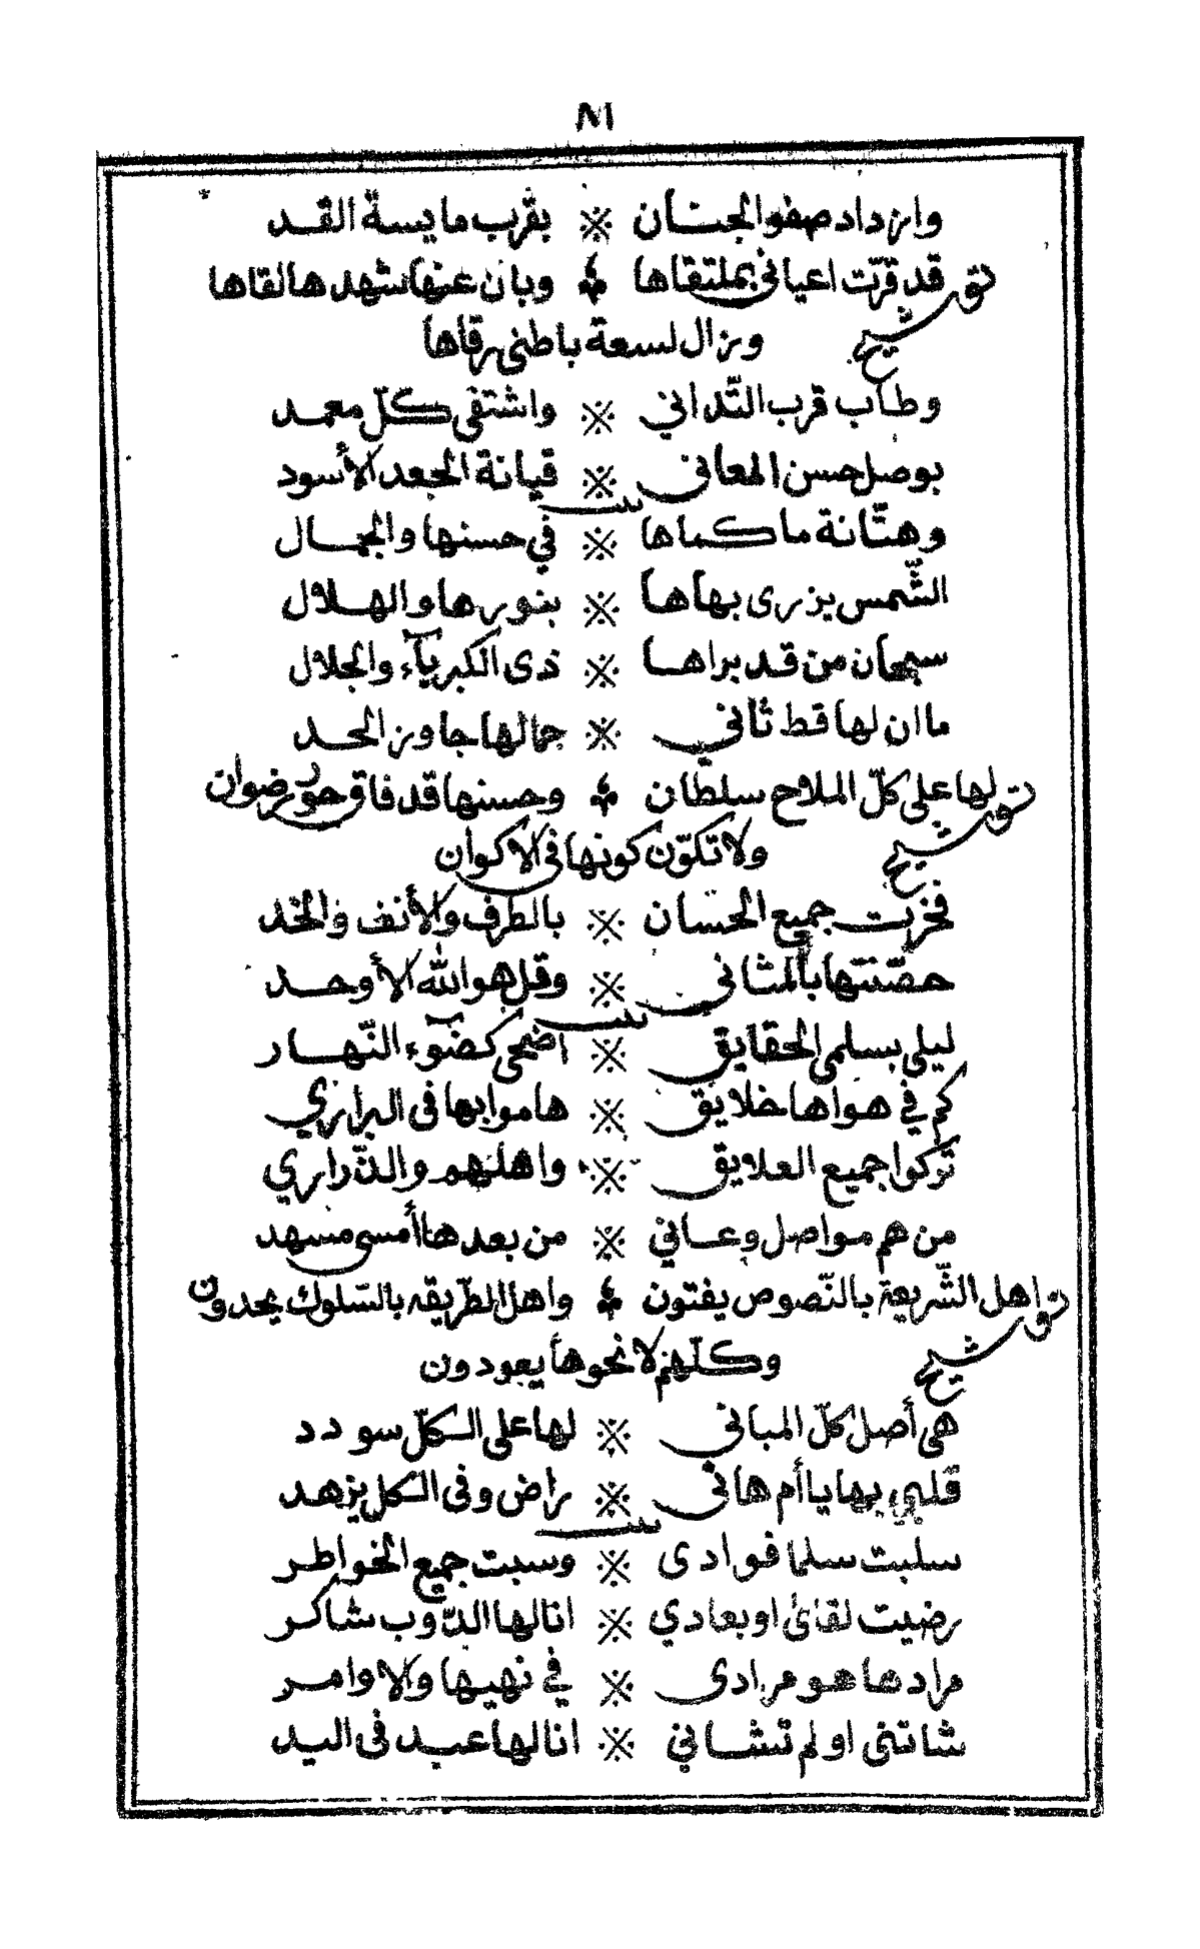 ٨١
وازداد صفو الجنان ※ بقرب مايسة القد
توشيح قد قرّت اعياني بملتقاها ※ وبان عنها شهدها لقاها
وزال لسعة باطنى رقاها
وطاب قرب التّداني ※ واشتفى كلّ معمد
بوصل حسن المعاني ※ قيانة الجعد الأسود
بيت
وهتّانة ما كماها ※ في حسنها والجمال
الشّمس يزرى بهاها ※ بنورها والهلال
سبحان من قد براها ※ ذى الكبريآء والجلال
ما ان لها قط ثاني ※ جمالها جاوز الحد
توشيح لها على كلّ الملاح سلطان ※ وحسنها قد فاق حور رضوان
ولا تكوّن كونها فى الاكوان
فخرت جميع الحسان ※ بالطرف والأنف والخد
حصّنتها بالمثاني ※ وقل هو الله الأوحد
بيت
ليلى بسلمى الحقايق ※ اضحى كضوء النّهار
كم في هواها خلايق ※ هاموا بها فى البراري
تركوا جميع العلايق ※ واهلهم والذّراري
من هم مواصل وعاني ※ من بعدها أمسى مسهد
توشيح اهل الشّريعة بالنّصوص يفتون ※ واهل الطريقه بالسّلوك يحدون
وكلّهم لا نحوها يعودون
هى أصل كلّ المباني ※ لها على الكلّ سودد
قلبي بها يا أم هاني ※ راض وفى الكل يزهد
بيت
سلبت سلما فوادى ※ وسبت جميع الخواطر
رضيت لقائ او بعادي ※ انا لها الدّوب شاكر
مرادها هو مرادى ※ في نهيها والاوامر
شاتنى او لم تشاني ※ انا لها عبد فى اليد